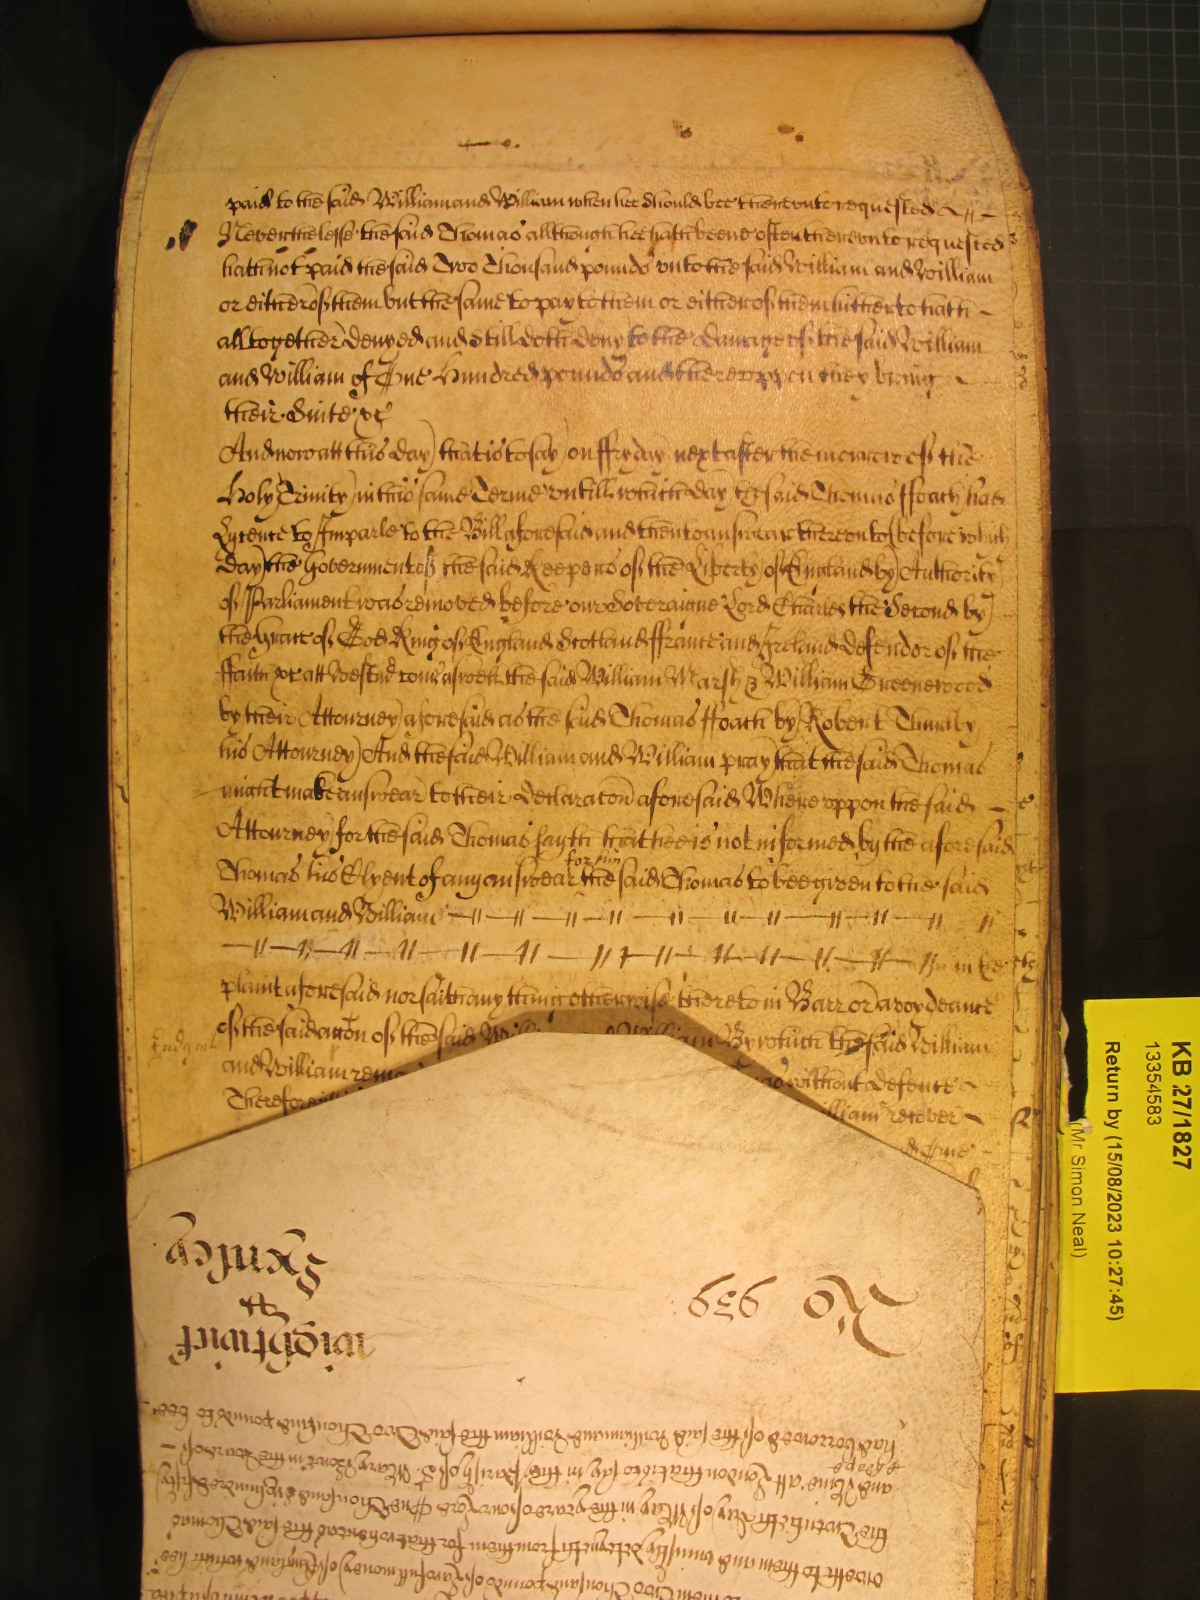 paid to the said William and William when hee should bee thereunto requested
Neverthelesse the said Thomas although hee hath beene often thereunto requested
hath not paid the said Two Thousand pounds unto the said William and William
or either of them but the same to pay to them or either of them hitherto hath
alltogether denyed and still doth deny to the damage of the said William
and William of One Hundred pounds and thereuppon they bring
their Suite &c
And now att this day that is to say on ffryday next after the morrow of the
Holy Trinity in this same Terme untill which day the said Thomas ffoath had
Lycence to Imparle to the Bill aforesaid and then to answear thereunto before which
day the Government of the said Keepers of the Liberty of England by Authority
of Parliament was removed before our Soveraigne Lord Charles the Second by
the Grace of God King of England Scotland ffrance and Ireland defendor of the
ffaith &c att Westm̃ come aswell the said William Marsh & William Greenewood
by their Attourney aforesaid as the said Thomas ffoath by Robert
his Attourney And the said William and William pray that the said Thomas
might make answear to their Declaracōn aforesaid Whereuppon the said
Attourney for the said Thomas sayth that hee is not informed by the aforesaid
Thomas his Clyent of any answear for him the said Thomas to bee given to the said
William and William
in the
plaint aforesaid nor saith any thing otherwise thereto in Barr or avoydance
of the said accōn of the said William By which the said William
Judgmt
and William without defence
Therefore William recover
One
No 939
Wightwick
&
Henley
had borrowed of the said William and William the said Two Thousand pounds to bee
and Nine att London that is to say in the parish of St Mary Bow in the Ward of
Cheape
the Twentieth day of May in the yeare of our Lord One Thousand six hundred fifty
oweth to them and unjustly deteyneth from them for that whereas the said Thomas
to them Two Thousand pounds of Lawfull money of England which hee
KB 27/1827
13354583
Return by (15/08/2023 10:27:45)
(Mr Simon Neal)